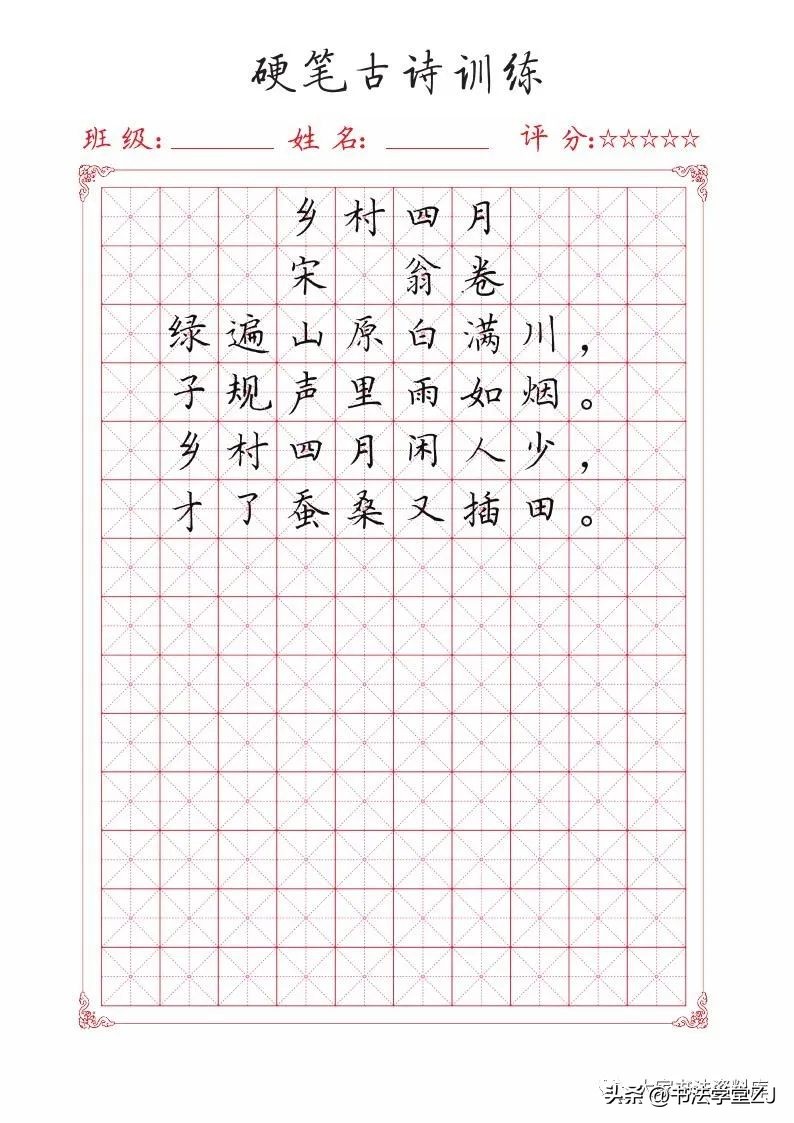 硬笔古诗训练
班级: 姓名: 评分:☆☆☆☆☆
乡村四月
宋 翁卷
绿遍山原白满川，
子规声里雨如烟。
乡村四月闲人少，
才了蚕桑又插田。
头条@书法学堂ZJ